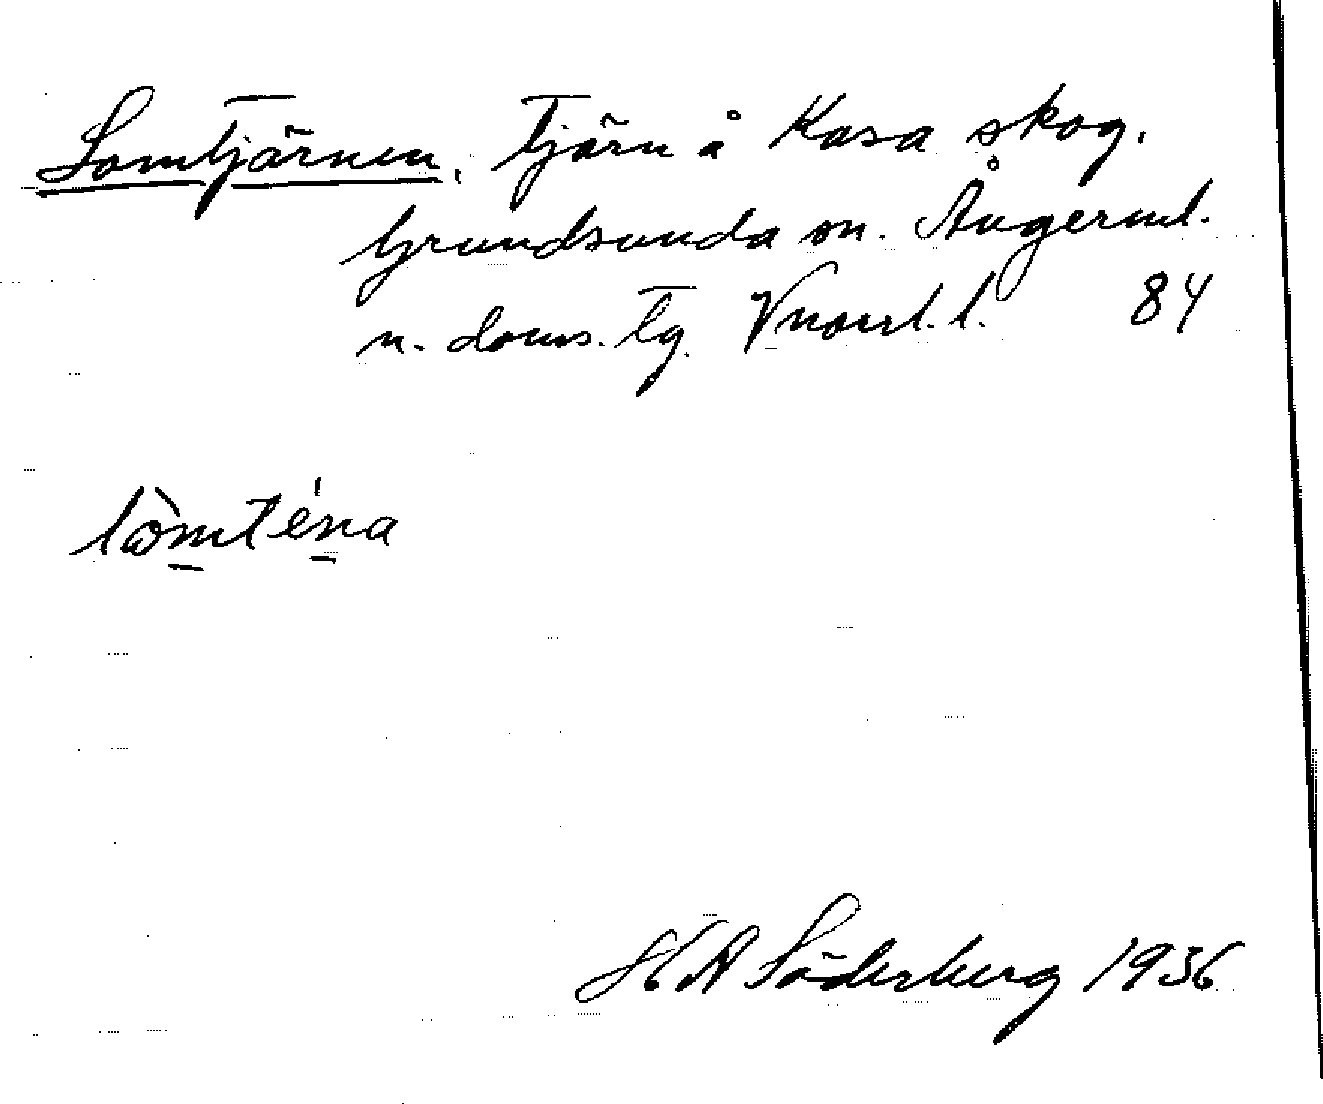 Lomtjärnen. Tjärn å Kasa skog.
Grundsunda sn. Ångerml.
n. doms. tg. Vnorrl. l. 84
lòmténa
H A Söderberg 1936